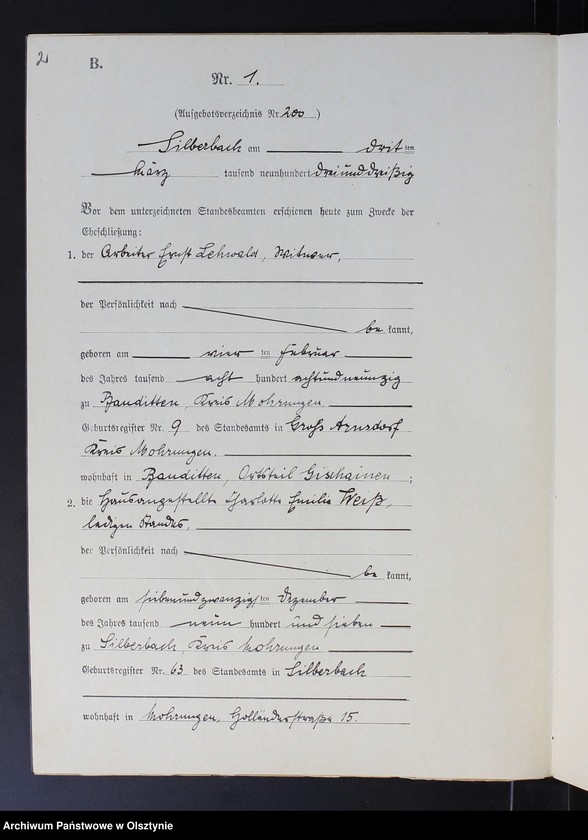 2
B.
Nr. 1.
(Aufgebotsverzeichnis Nr. 200)
Silberbach am drit ten
März tausend neunhundert dreiunddreißig
Vor dem unterzeichneten Standesbeamten erschienen heute zum Zwecke der
Eheschließung:
1. der Arbeiter Ernst Lehwald, Witwer,
der Persönlichkeit nach
be kannt,
geboren am vier ten Februar
des Jahres tausend acht hundert achtundneunzig
zu Banditten, Kreis Mohrungen
Geburtsregister Nr. 9 des Standesamts in Groß Arnsdorf
Kreis Mohrungen.
wohnhaft in Banditten, Ortsteil Gischainen ;
2. die Hausangestellte Charlotte Emilie Weiß,
ledigen Standes,
der Persönlichkeit nach
be kannt,
geboren am siebenundzwanzigs ten Dezember
des Jahres tausend neun hundert und sieben
zu Silberbach, Kreis Mohrungen
Geburtsregister Nr. 63 des Standesamts in Silberbach
wohnhaft in Mohrungen, Holländerstraße 15.
Archiwum Państwowe w Olsztynie